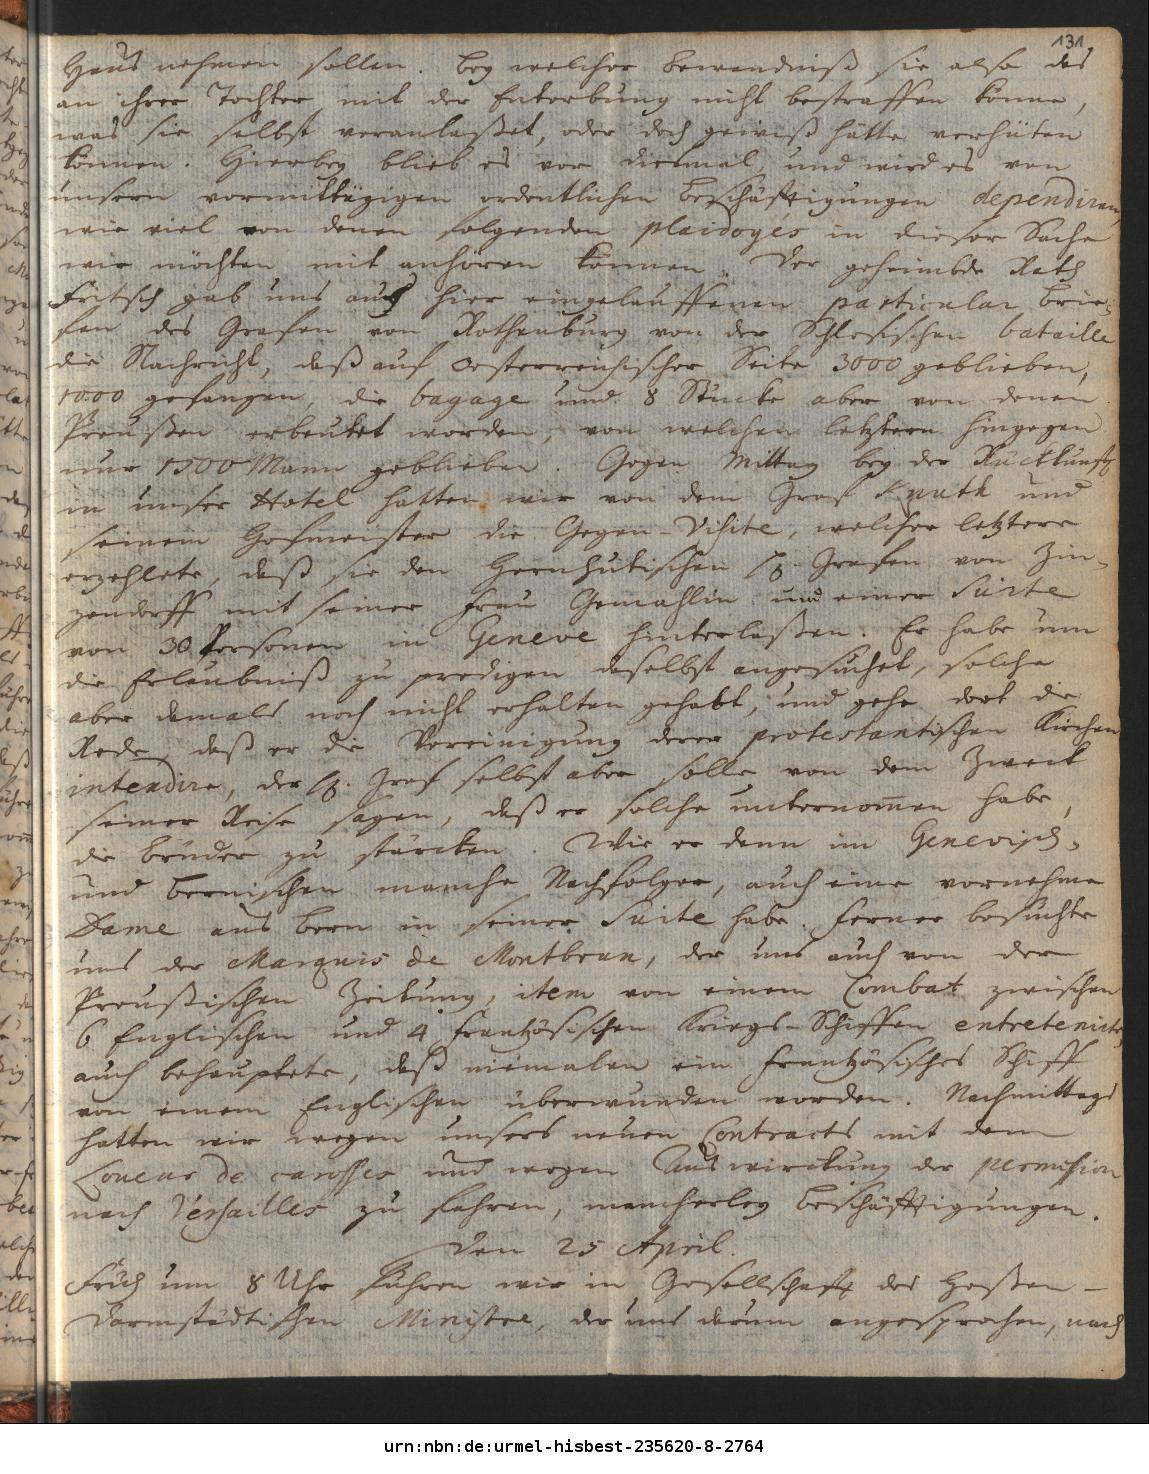 131.
Hauß nehmen sollen. Bey welcher Bewendniß sie also das
an ihrer Tochter mit der Enterbung nicht bestraffen könne,
was sie selbst veranlaßet, oder doch gewiß hätte verhüten
können. Hierbey blieb es vor diesmal, und wird es von
unsern vormittägigen ordentlichen Beschäfftigungen dependiren,
wie viel von denen folgenden plaidoyés in dieser Sache
wir möchten mit anhören können. Der geheimbde Rath
Fritsch gab uns aus hier eingelauffenen particular Brie-
fen des Grafen von Rothenburg von der Schlesischen bataille
die Nachricht, daß auf Oesterreichischer Seite 3000 geblieben,
1000 gefangen, die bagage und 8 Stücke aber von denen
Preußen erbeutet worden, von welchen letztern hingegen
nur 1500 Mann geblieben. Gegen Mittag bey der Rückkunfft
in unser Hotel hatten wir von dem Graf Knuth und
seinem Hofmeister die Gegen-Visite, welcher letztere
erzehlete, daß sie den Hernhutischen H. Grafen von Zin-
zendorff mit seiner Frau Gemahlin und einer Suite
von 30 Personen in Geneve hinterlaßen. Er habe um
die Erlaubniß zu predigen daselbst angesuchet, solche
aber damals noch nicht erhalten gehabt, und gehe dort die
Rede, daß er die Vereinigung derer protestantischen Kirchen
intendire, der H. Graf selbst aber solle von dem Zweck
seiner Reise sagen, daß er solche unternom̄en habe,
die Brüder zu stärcken. Wie er denn im Genevisch-
und Bernischen manche Nachfolger, auch eine vornehme
Dame aus Bern in seiner Suite habe. Ferner besuchte
uns der Marquis de Montbrun, der uns auch von der
Preußischen Zeitung, item von einem Combat zwischen
6 Englischen und 4 Frantzösischen Kriegs-Schiffen entretenirte,
auch behauptete, daß niemalen ein Frantzösisches Schiff
von einem Englischen überwunden worden. Nachmittags
hatten wir wegen unsers neuen Contracts mit dem
Loueur de carosses und wegen Auswirckung der permission
nach Versailles zu fahren, mancherley Beschäfftigungen.
Den 25 April.
Früh um 8 Uhr fuhren wir in Gesellschafft des Heßen-
Darmstädtischen Ministre, der uns darum angesprochen, nach
urn:nbn:de:urmel-hisbest-235620-8-2764